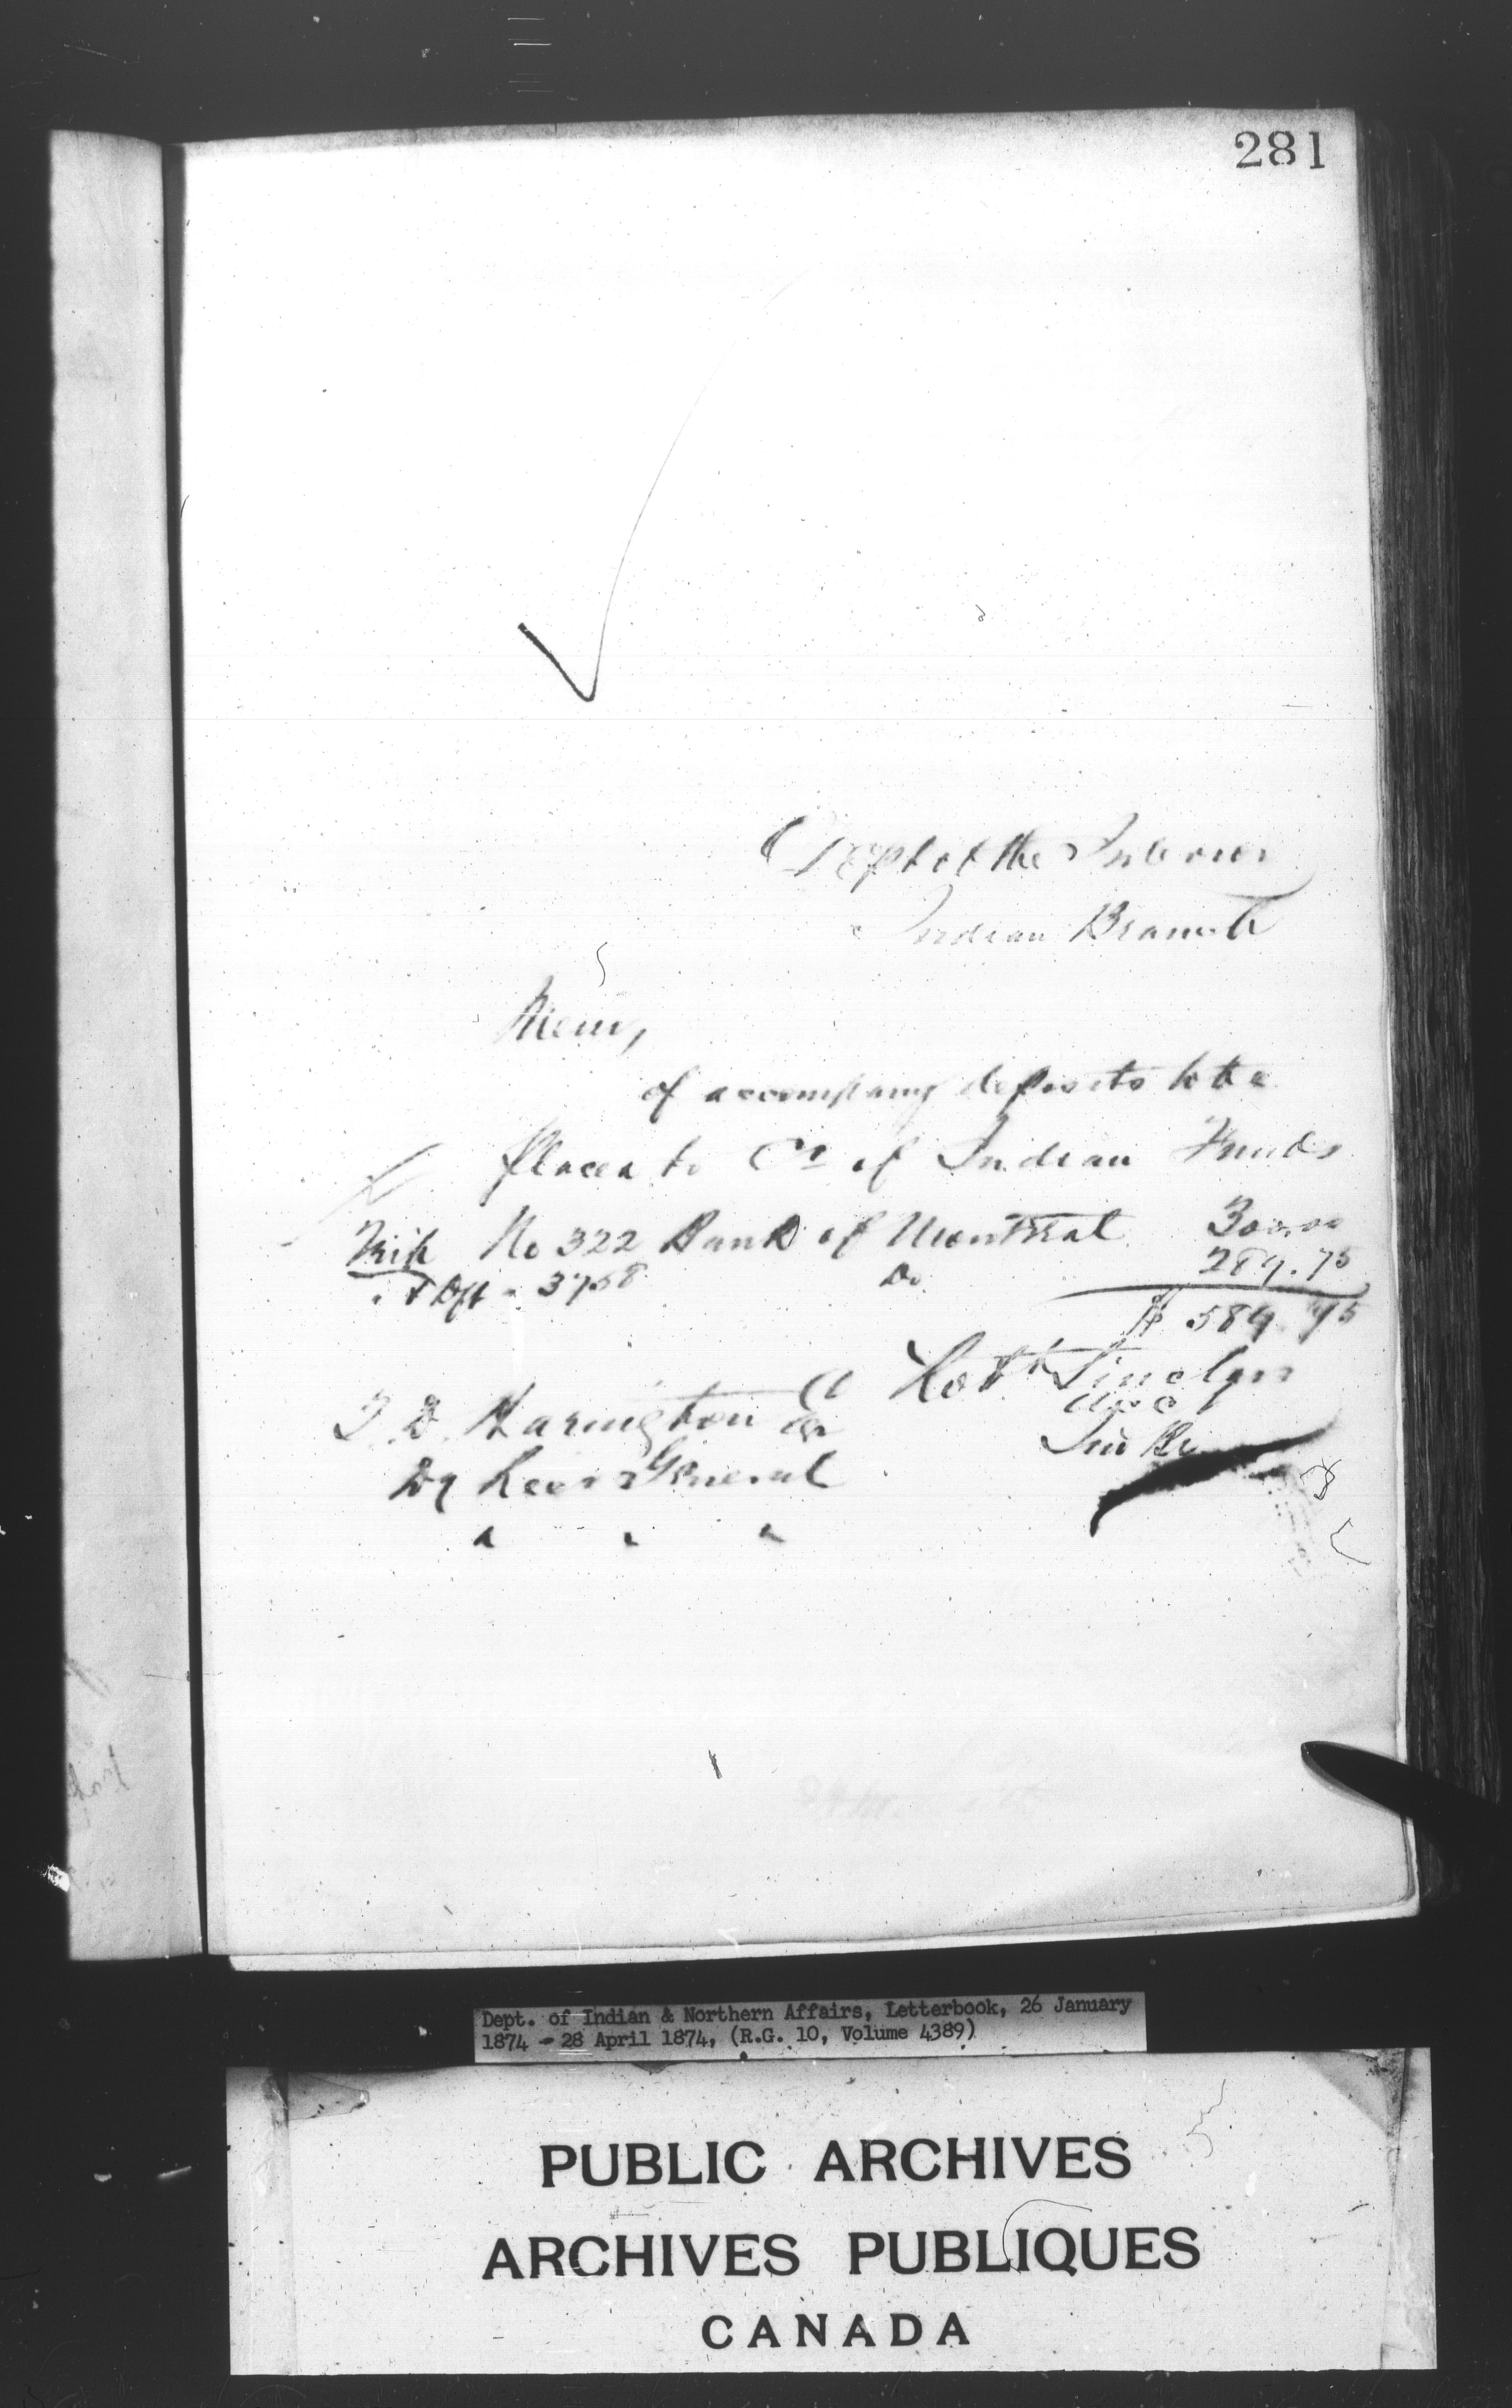 281
Dept of the Interior
Indian Branch
Memo,
of accompany deposits to be
placed to Cr of Indian Funds
No 322 Bank of Montreal 300.00
" Dft " 3758 Do 289.75
$ 589.75
Robt Sinclair
T. D. Harington
Dy Recr General
" " "
Dept. of Indian & Northern Affairs, Letterbook, 26 January
1874 - 28 April 1874, (R.G. 10, Volume 4389)
PUBLIC ARCHIVES
ARCHIVES PUBLIQUES
CANADA